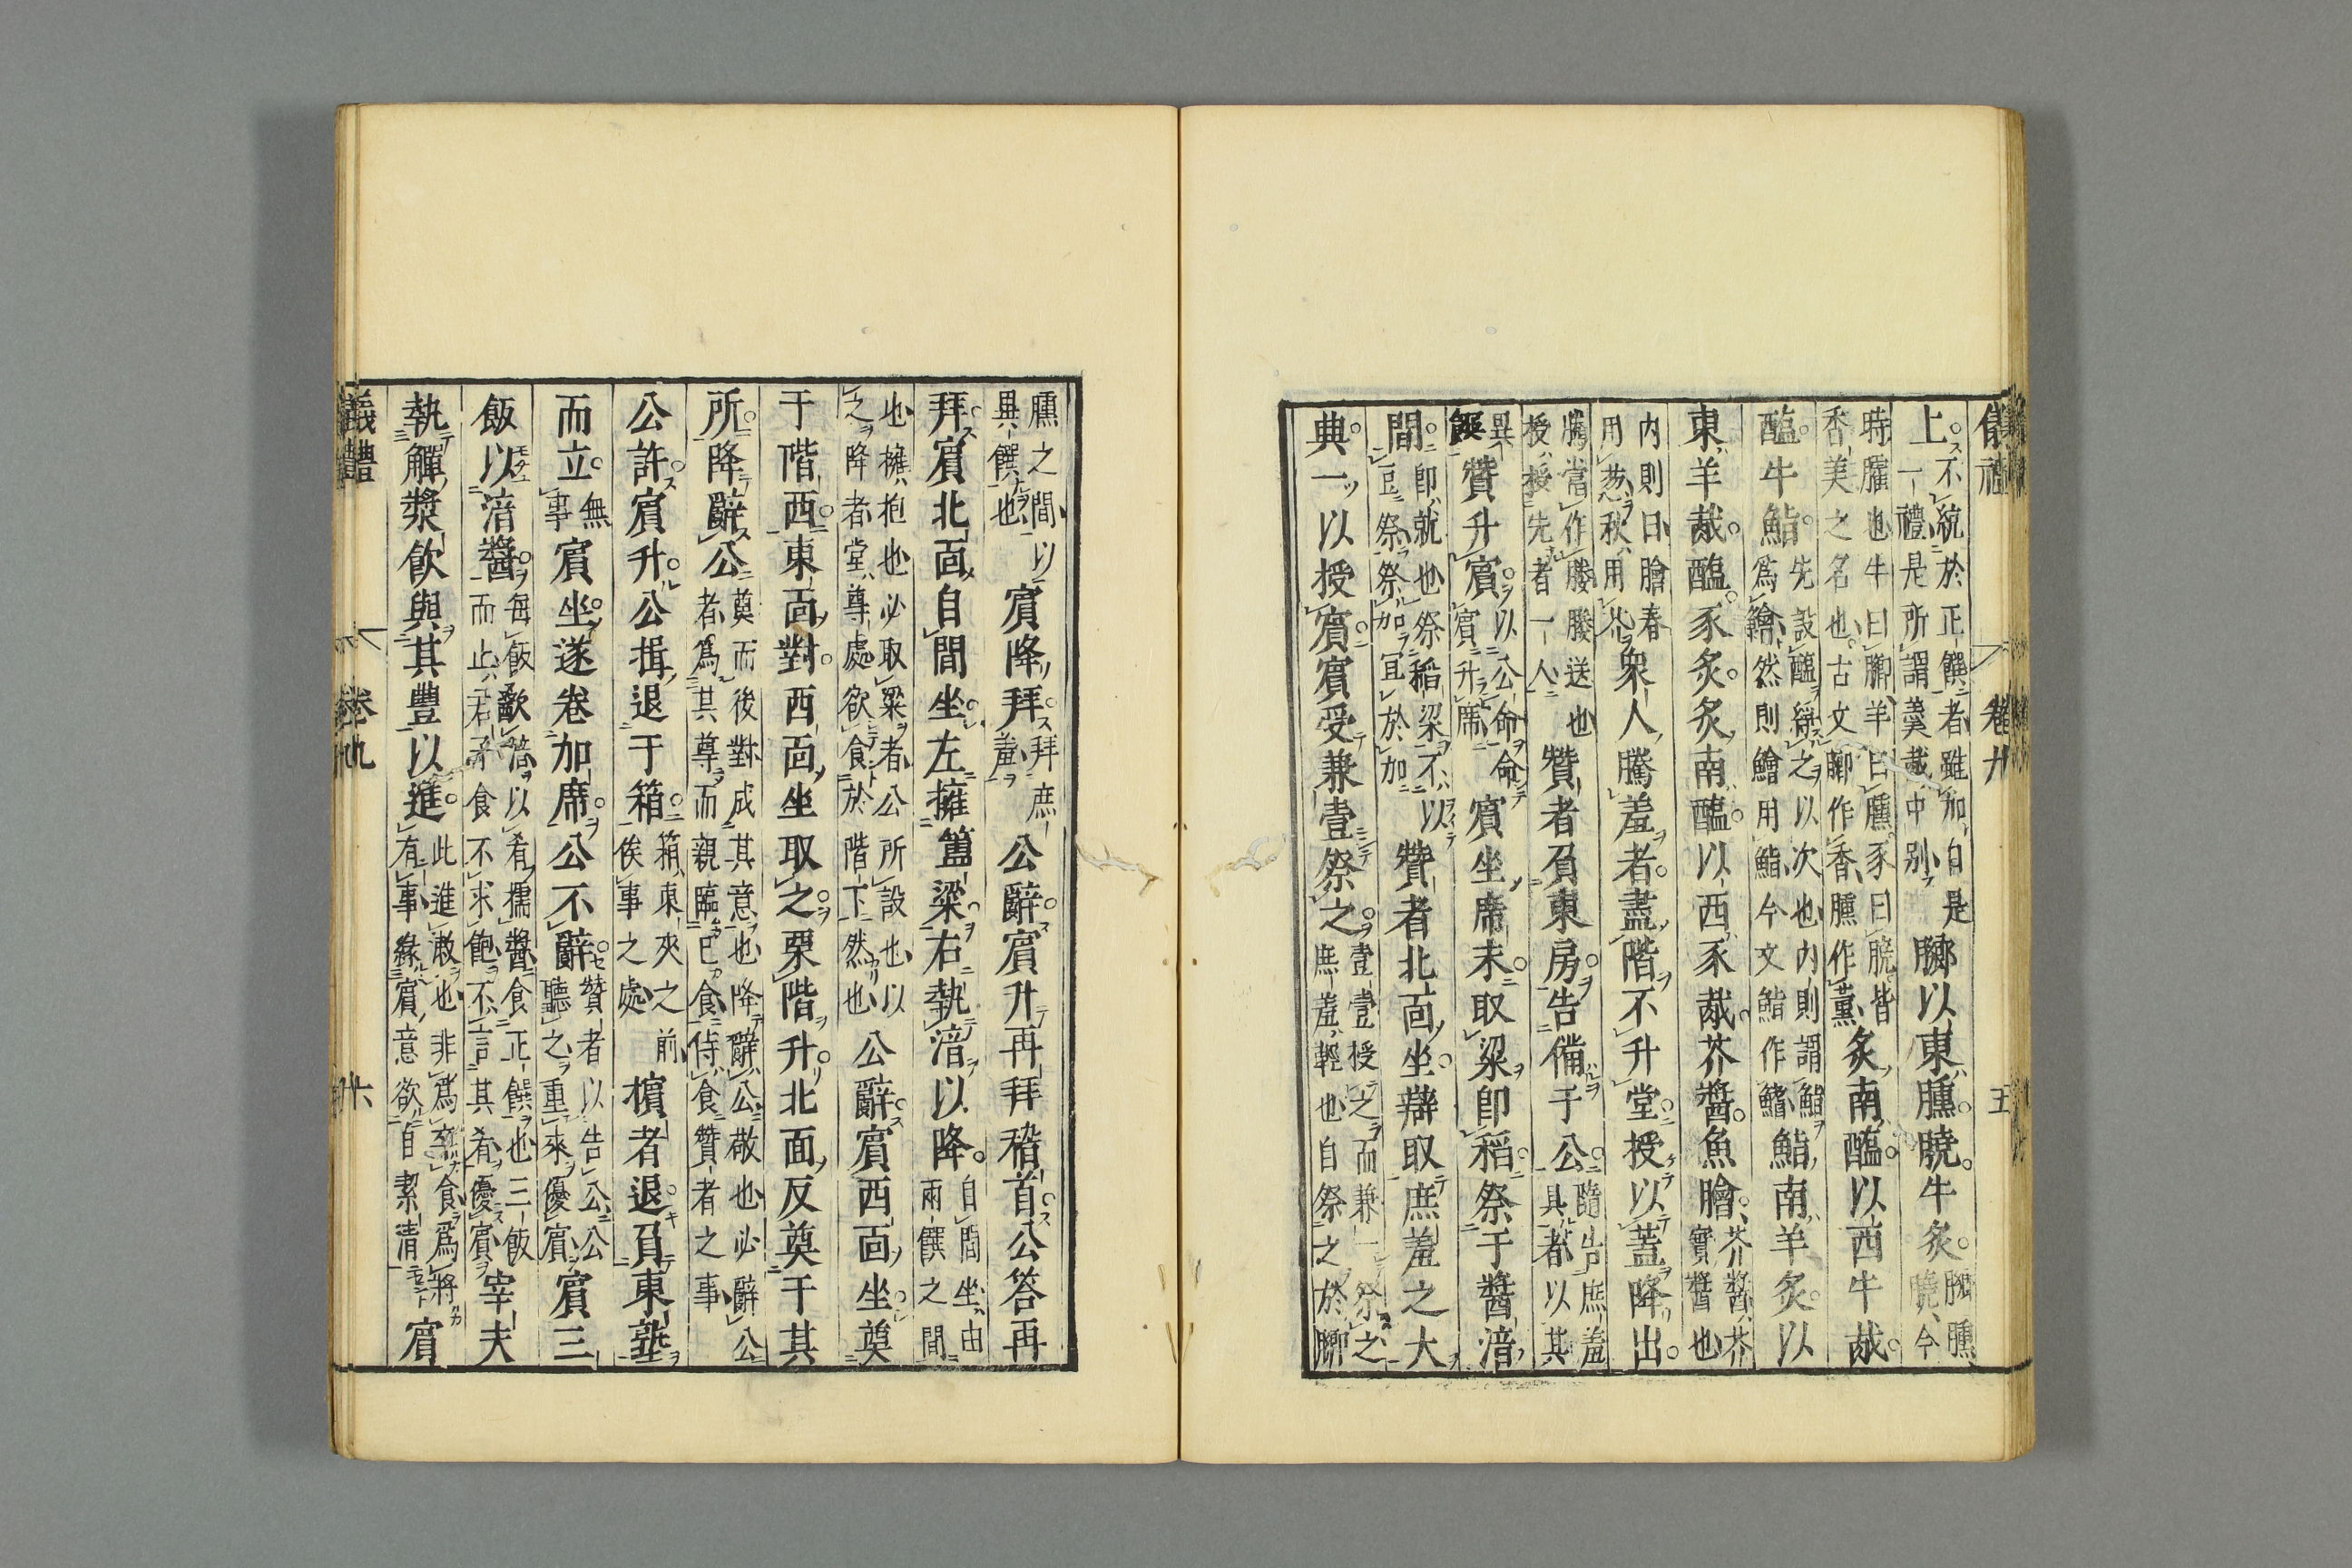 儀禮　卷九　五
上不統於正饌者雖加自是一禮是所謂羹胾中別膷以東臐膮牛炙膷臐膮今
時臛也牛曰膷羊曰臐豕曰膮皆香美之名也古文膷作香臐作薰炙南醢以西牛胾
醢牛鮨先設醢綪之以次也内則謂鮨爲鱠然則鱠用鮨今文鮨作鰭鮨南羊炙以
東羊胾醢豕炙炙南醢以西豕胾芥醬魚膾芥醬芥實醬也
内則曰膾春用葱秋用芥衆人騰羞者盡階不升堂授以蓋降出
騰當作媵媵送也授授先者一人贊者負東房告備于公告庶羞具者以其
異饌贊升賓以公命命賓升席賓坐席末取粱卽稻祭于醬湆
間卽就也祭稻粱不以豆祭祭加宜於加贊者北面坐辯取庶羞之大
典一以授賓賓受兼壹祭之壹壹授之而兼一祭之庶羞輕也自祭之於膷
臐之間以異饌也賓降拜拜庶羞公辭賓升再拜稽首公荅再
拜賓北面自間坐左擁簠粱右執湆以降自間坐由兩饌之間
也擁抱也必取粱者公所設也以之降者堂尊處欲食於階下然也公辭賓西面坐奠
于階西東面對西面坐取之栗階升北面反奠于其
所降辭公奠而後對成其意也降辭公敬也必辭公者爲其尊而親臨己食侍食贊者之事
公許賓升公揖退于箱箱東夾之前俟事之處擯者退負東塾
而立無事賓坐遂卷加席公不辭贊者以告公公聽之重來優賓賓三
飯以湆醬每飯歠湆以肴擩醬食正饌也三飯而止君子食不求飽不言其肴優賓宰夫
執觶漿飲與其豐以進此進漱也非爲卒食爲將有事緣賓意欲自絜清賓
儀禮　卷九　十六